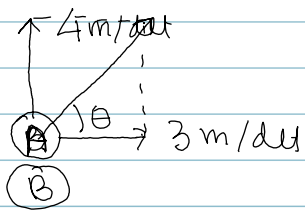 4 m/det
θ
3 m/det
A
B